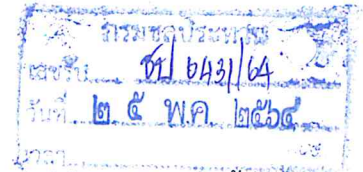 กรมชลประทาน
เลขรับ ชป 6431/64
วันที่ ๒ ๕ พ.ค. ๒๕๖๔
เวลา